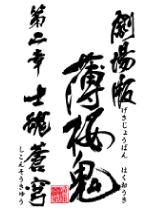 劇場版
げきじょうばん
薄桜鬼
はくおうき
第二章 士魂蒼穹
しこんそうきゅう